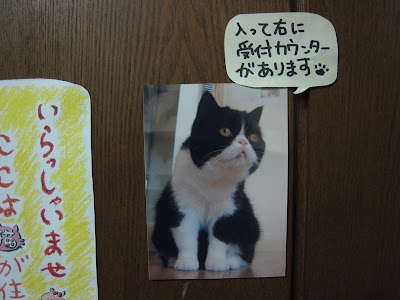 入って右に
受付カウンター
があります
いらっしゃいませ
ここは
が住